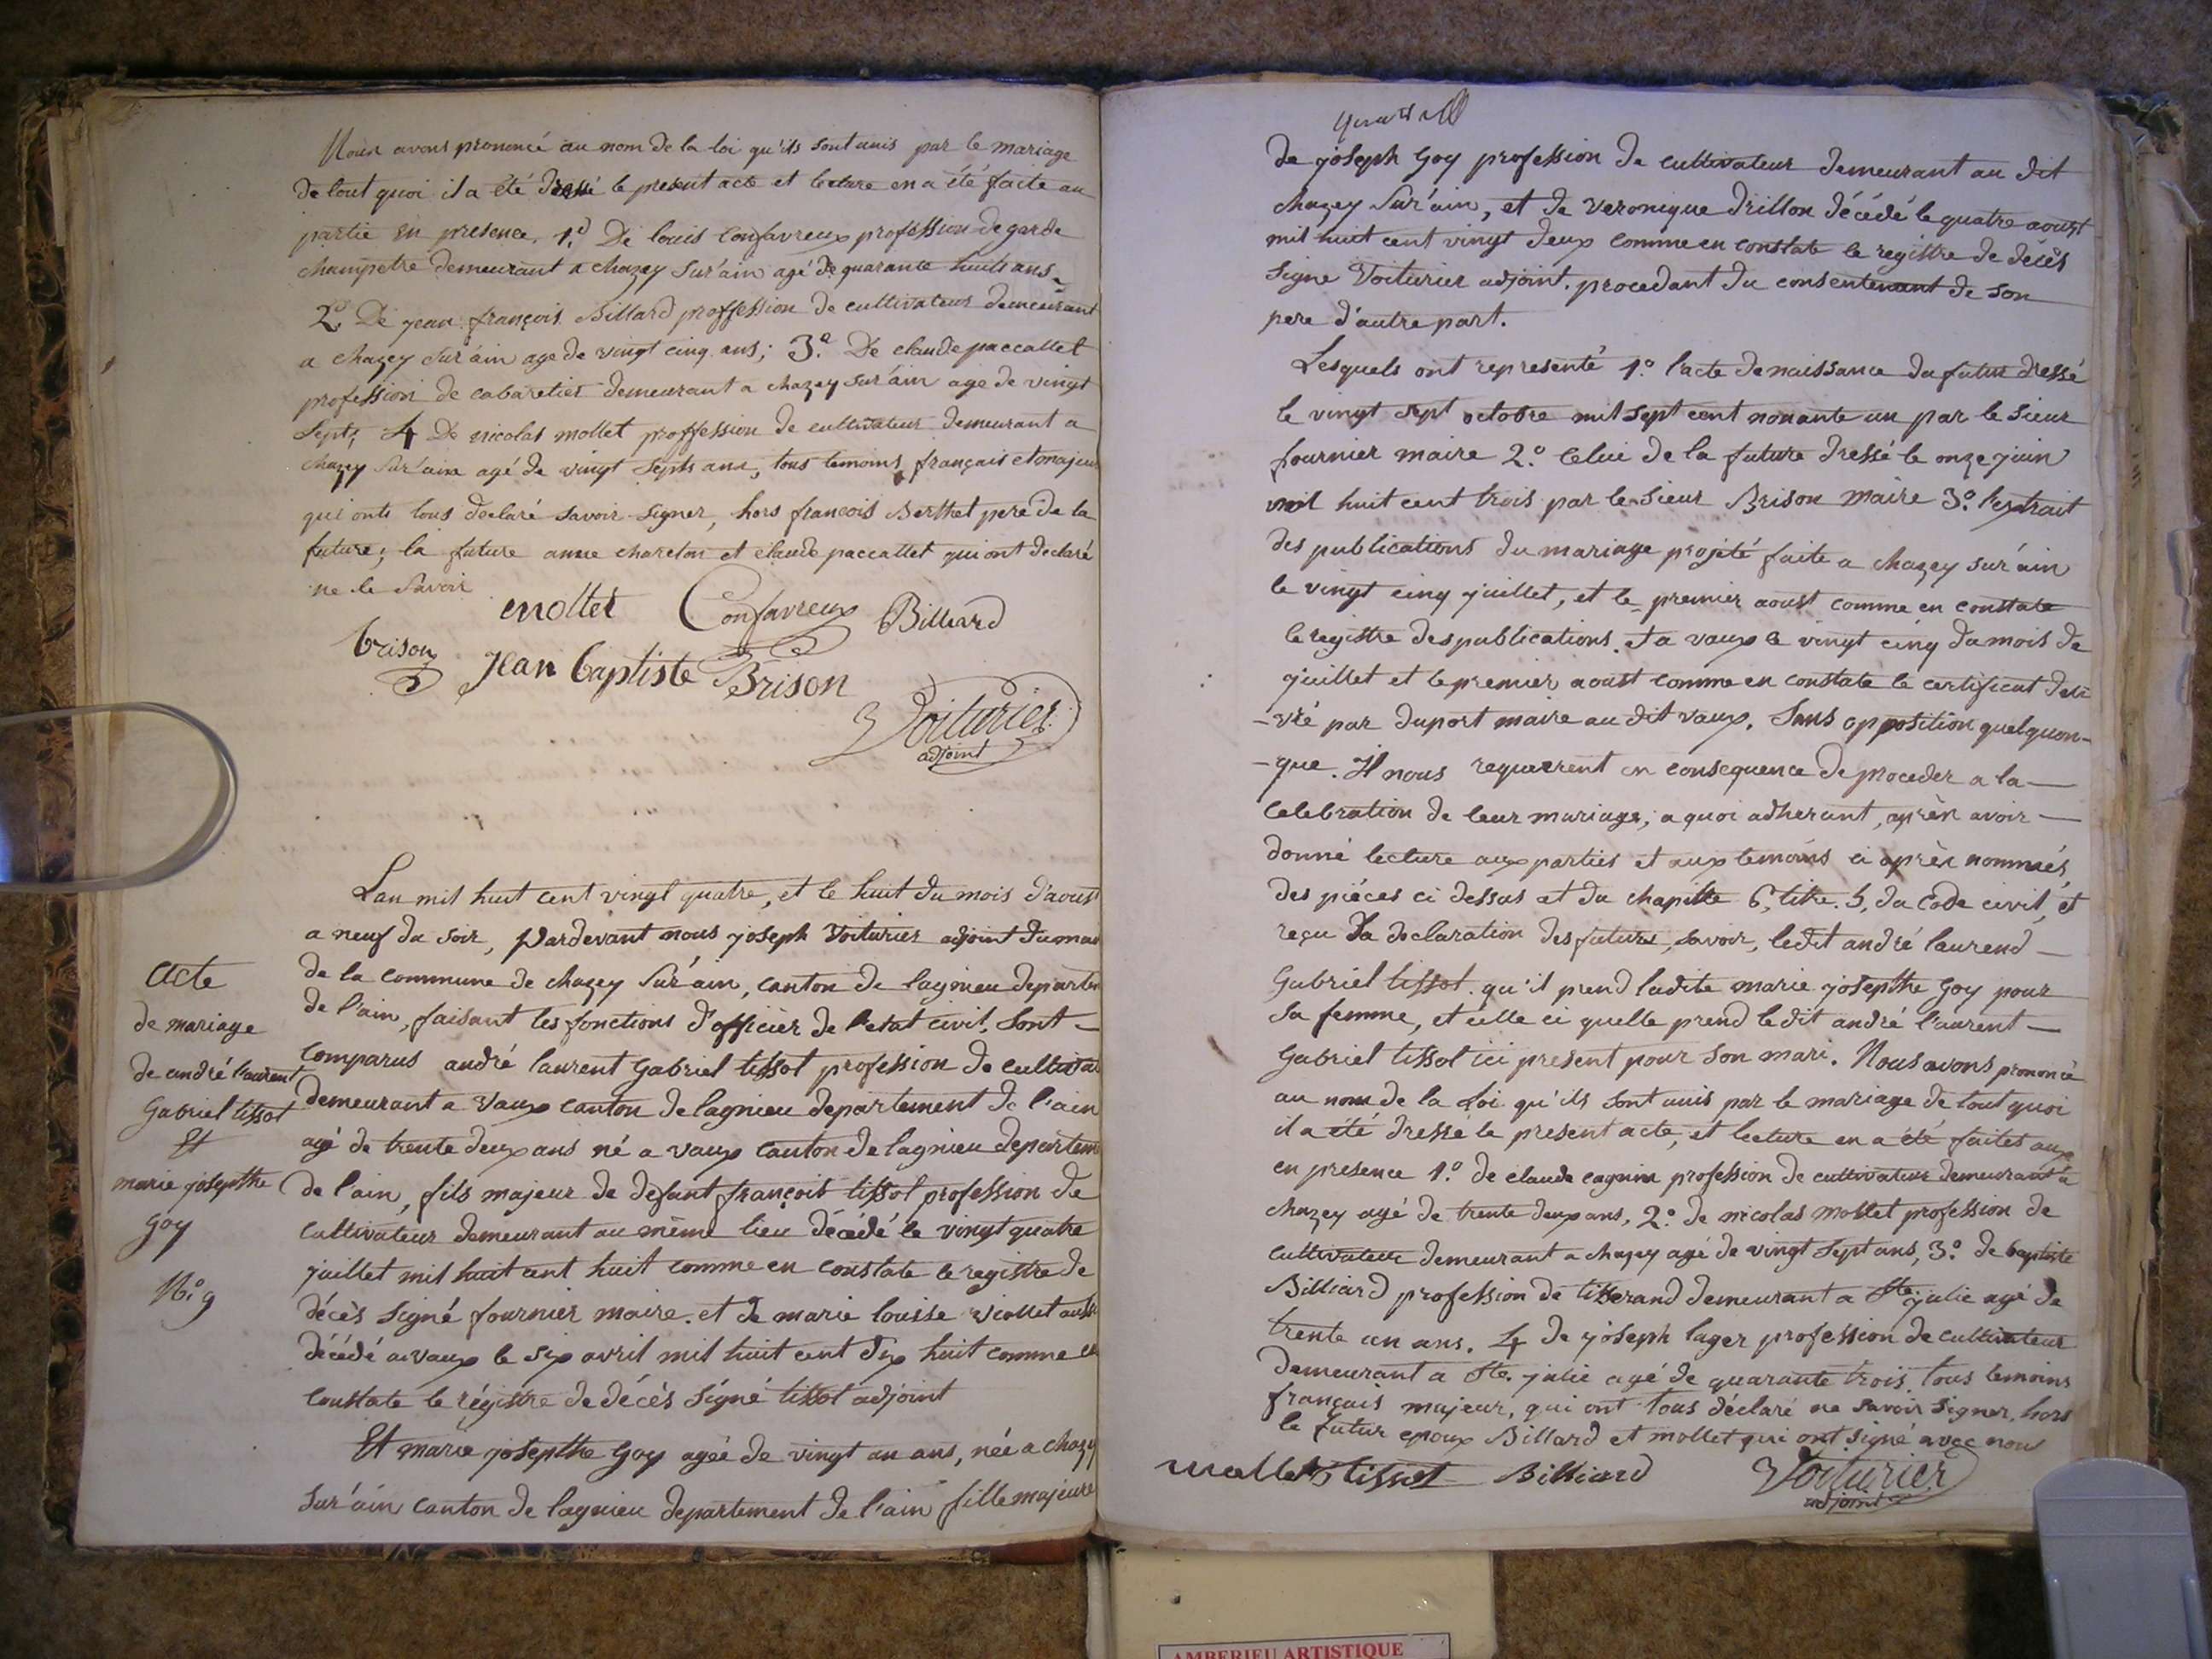 Nous avons prononcé au nom de la loi qu'ils sont unis par le mariage
de tout quoi il a été dressé le present acte et lecture en a été faite au
partie en presence. 1.º De louis Confavreux profession de garde
champetre demeurant a chazey sur'ain agé de quarante huits ans
2.º De jean françois Billard proffession de cultivateur demeurant
a chazey sur'ain age de vingt cinq ans; 3.º De claude paccallet
profession de cabaretier demeurant a chazey sur'ain age de vingt
sept; 4 De nicolas mollet proffession de cultivateur demeurant a
chazey sur'ain agé de vingt septs ans, tous temoins français et majeur
qui onts tous declaré savoir signer, hors francois Berthet pere de la
future; la future anne chareton et claude paccallet qui ont declaré
ne le savoir
mollet Confavreux Billiard
brison Jean baptiste Brison
Voiturier
adjoint
Lan mil huit cent vingt quatre, et le huit du mois d'aoust
a neuf du soir, Pardevant nous joseph Voiturier adjoint du mai
de la commune de chazey sur'ain, canton de lagnieu departem
de l'ain, faisant les fonctions d'officier de l'etat civil. Sont
comparus andré laurent Gabriel tissot profession de cultivat
demeurant a Vaux canton de lagnieu departement de l'ain
agé de trente deux ans né a vaux canton de lagnieu departem
de l'ain, fils majeur de defunt françois tissot profession de
cultivateur demeurant au même lieu décédé le vingt quatre
juillet mil huit cent huit comme en constate le registre de
décès signé fournier maire. et de marie louisse Viollet aussi
décédé a vaux le six avril mil huit cent dix huit comme en
constate le régistre de décès signé tissot adjoint
Et marie josepthe Goy agée de vingt un ans, née a chazey
sur'ain canton de lagnieu departement de l'ain fille majeure
acte
de mariage
de andré laurent
Gabriel tissot
Et
marie josepthe
Goy
N.º 9
de joseph Goy profession de cultivateur demeurant au dit
chazey sur'ain, et de veronique drillon décédé le quatre aoust
mil huit cent vingt deux comme en constate le registre de décès
signe Voiturier adjoint. procedant du consentemant de son
pere d'autre part.
Lesquels ont representé 1.º l'acte de naissance du futur dressé
le vingt sept octobre mil sept cent nonante un par le sieur
fournier maire 2.º Celui de la future dressé le onze juin
mil huit cent trois par le sieur Brison maire 3.º l'extrait
des publications du mariage projeté faite a chazey sur'ain
le vingt cinq juillet, et le premier aoust comme en constate
le registre des publications. et a vaux le vingt cinq du mois de
juillet et le premier aoust comme en constate le certificat deli
-vré par duport maire au dit vaux. Sans opposition quelquon-
-que. Il nous requerrent en consequence de proceder a la
Celebration de leur mariage; a quoi adherant, après avoir
donné lecture aux parties et aux temoins ci après nommés,
des piéces ci dessus et du chapitre 6, titre. 5, du Code civil, et
reçu la declaration des futurs, savoir, ledit andré laurend
Gabriel tissot qu'il prend ladite marie josepthe Goy pour
sa femme, et celle ci quelle prend le dit andré l'aurent
Gabriel tissot ici present pour son mari. Nous avons prononcé
au nom de la Loi qu'ils sont unis par le mariage de tout quoi
il a été dressé le present acte, et lecture en a été faites aux
en presence 1.º de claude cagnin profession de cultivateur demeurant a
chazey agé de trente deux ans, 2.º de nicolas mollet profession de
cultivateur demeurant a chazey agé de vingt sept ans, 3.º de baptiste
Billiard profession de tisserand demeurant a Ste julie agé de
trente un ans. 4 de joseph lager profession de cultivateur
demeurant a Ste. julie agé de quarante trois. tous temoins
français majeur, qui ont tous déclaré ne savoir signer, hors
le futur epoux Billard et mollet qui ont signé avec nous
mollet tissot Billiard Voiturier
adjoint
AMBERIEU ARTISTIQUE